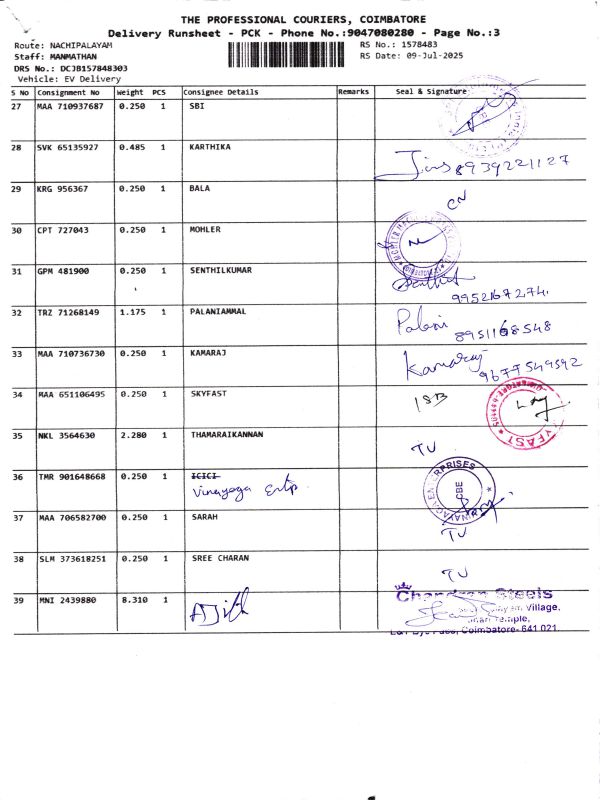 THE PROFESSIONAL COURIERS, COIMBATORE
Delivery Runsheet - PCK - Phone No.:9047080280 - Page No.:3
Route: NACHIPALAYAM
Staff: MANMATHAN
DRS No.: DCJB157848303
Vehicle: EV Delivery
RS No.: 1578483
RS Date: 09-Jul-2025
S No Consignment No Weight PCS Consignee Details Remarks Seal & Signature
27 MAA 710937687 0.250 1 SBI
28 SVK 65135927 0.485 1 KARTHIKA 8939221127
29 KRG 956367 0.250 1 BALA CN
30 CPT 727043 0.250 1 MOHLER
31 GPM 481900 0.250 1 SENTHILKUMAR Senthil
9952167274
32 TRZ 71268149 1.175 1 PALANIAMMAL Palani
8951168548
33 MAA 710736730 0.250 1 KAMARAJ Kamaraj
9677549592
34 MAA 651106495 0.250 1 SKYFAST
35 NKL 3564630 2.280 1 THAMARAIKANNAN TU
36 TMR 901648668 0.250 1 ICICI
Vinayaga Entp
VINAYAGA ENTERPRISES
CBE
37 MAA 706582700 0.250 1 SARAH TU
38 SLM 373618251 0.250 1 SREE CHARAN TU
39 MNI 2439880 8.310 1 AJith
Chandran Steels
Village,
Temple,
Coimbatore- 641 021.